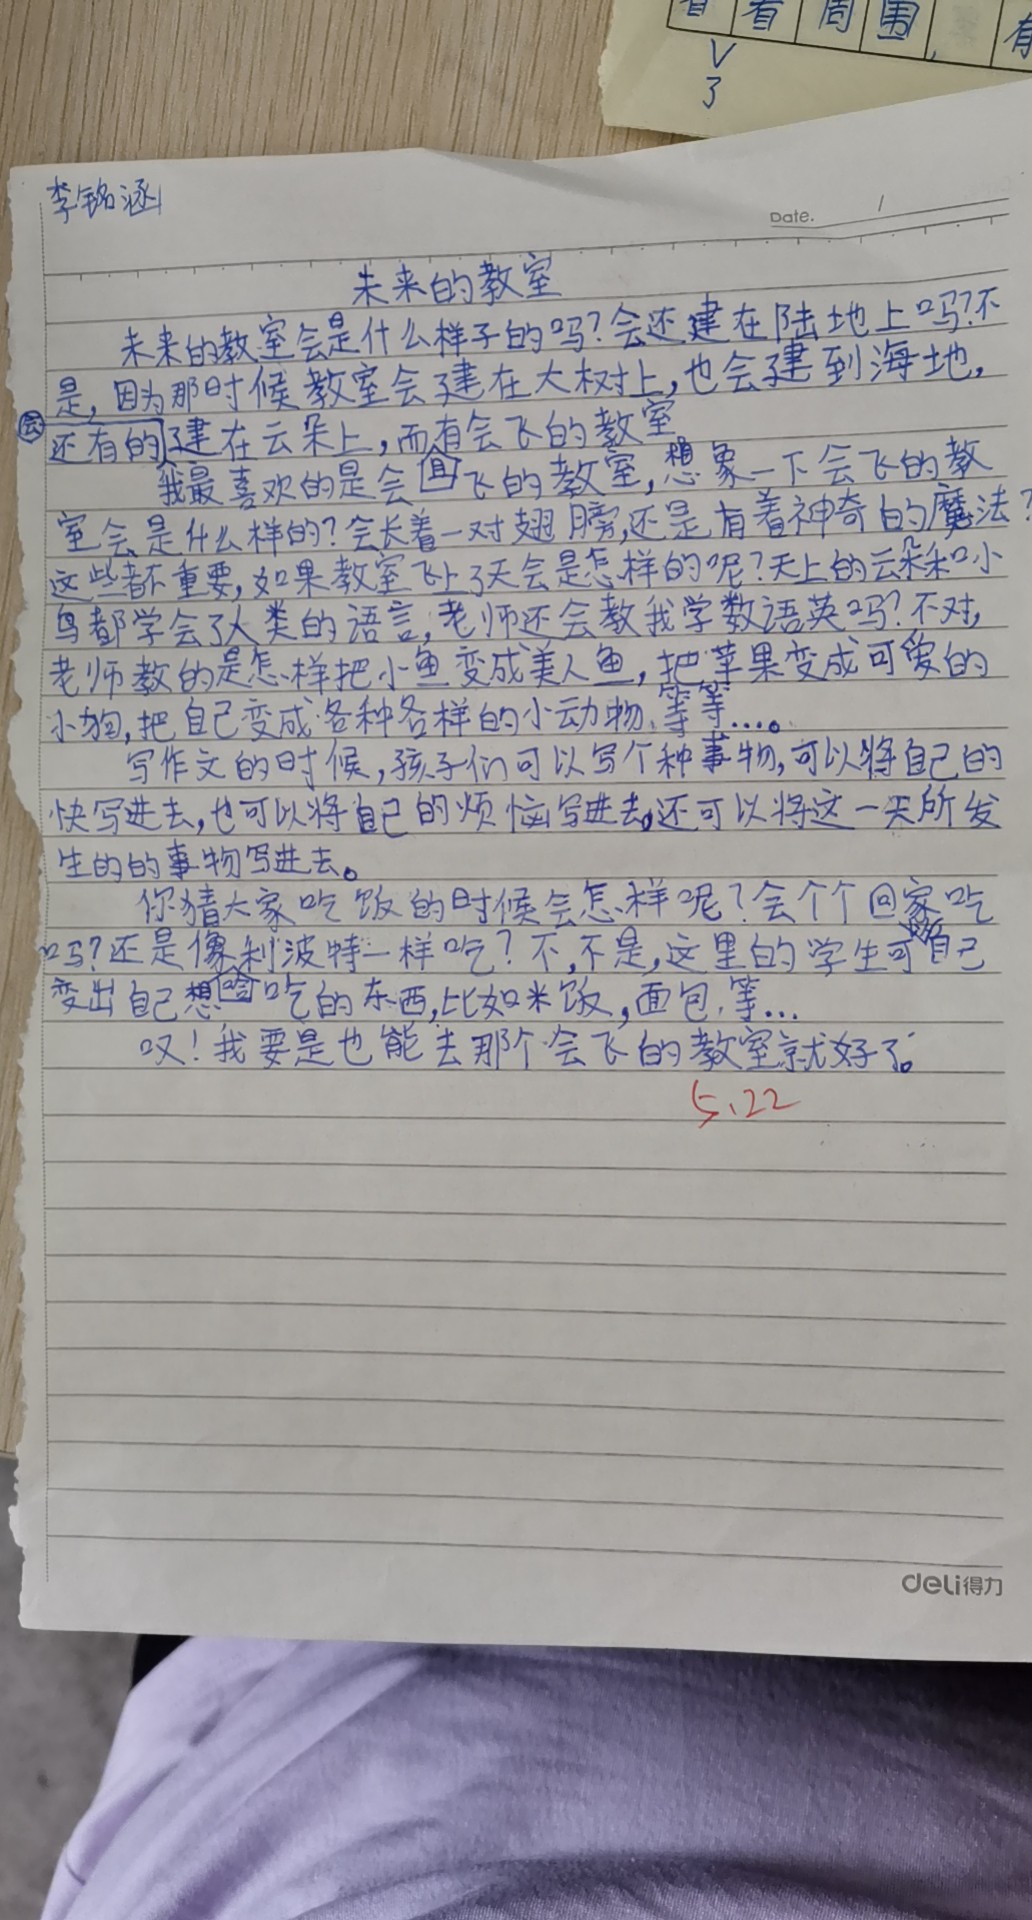 看看周围,有
3
李铭涵
Date.
未来的教室
未来的教室会是什么样子的吗?会还建在陆地上吗?不
是,因为那时候教室会建在大树上,也会建到海地,
会
还有的建在云朵上,而有会飞的教室
我最喜欢的是会飞的教室,想象一下会飞的教
室会是什么样的?会长着一对翅膀,还是有着神奇的魔法?
这些都不重要,如果教室飞上了天会是怎样的呢?天上的云朵和小
鸟都学会了人类的语言,老师还会教我学数语英吗?不对,
老师教的是怎样把小鱼变成美人鱼,把苹果变成可爱的
小狗,把自己变成各种各样的小动物,等等...。
写作文的时候,孩子们可以写个种事物,可以将自己的
快写进去,也可以将自己的烦恼写进去,还可以将这一天所发
生的的事物写进去。
你猜大家吃饭的时候会怎样呢?会个个回家吃
吗?还是像利波特一样吃?不,不是,这里的学生可自己
变出自己想吃的东西,比如米饭,面包,等...
叹!我要是也能去那个会飞的教室就好了。
5.22
deli得力